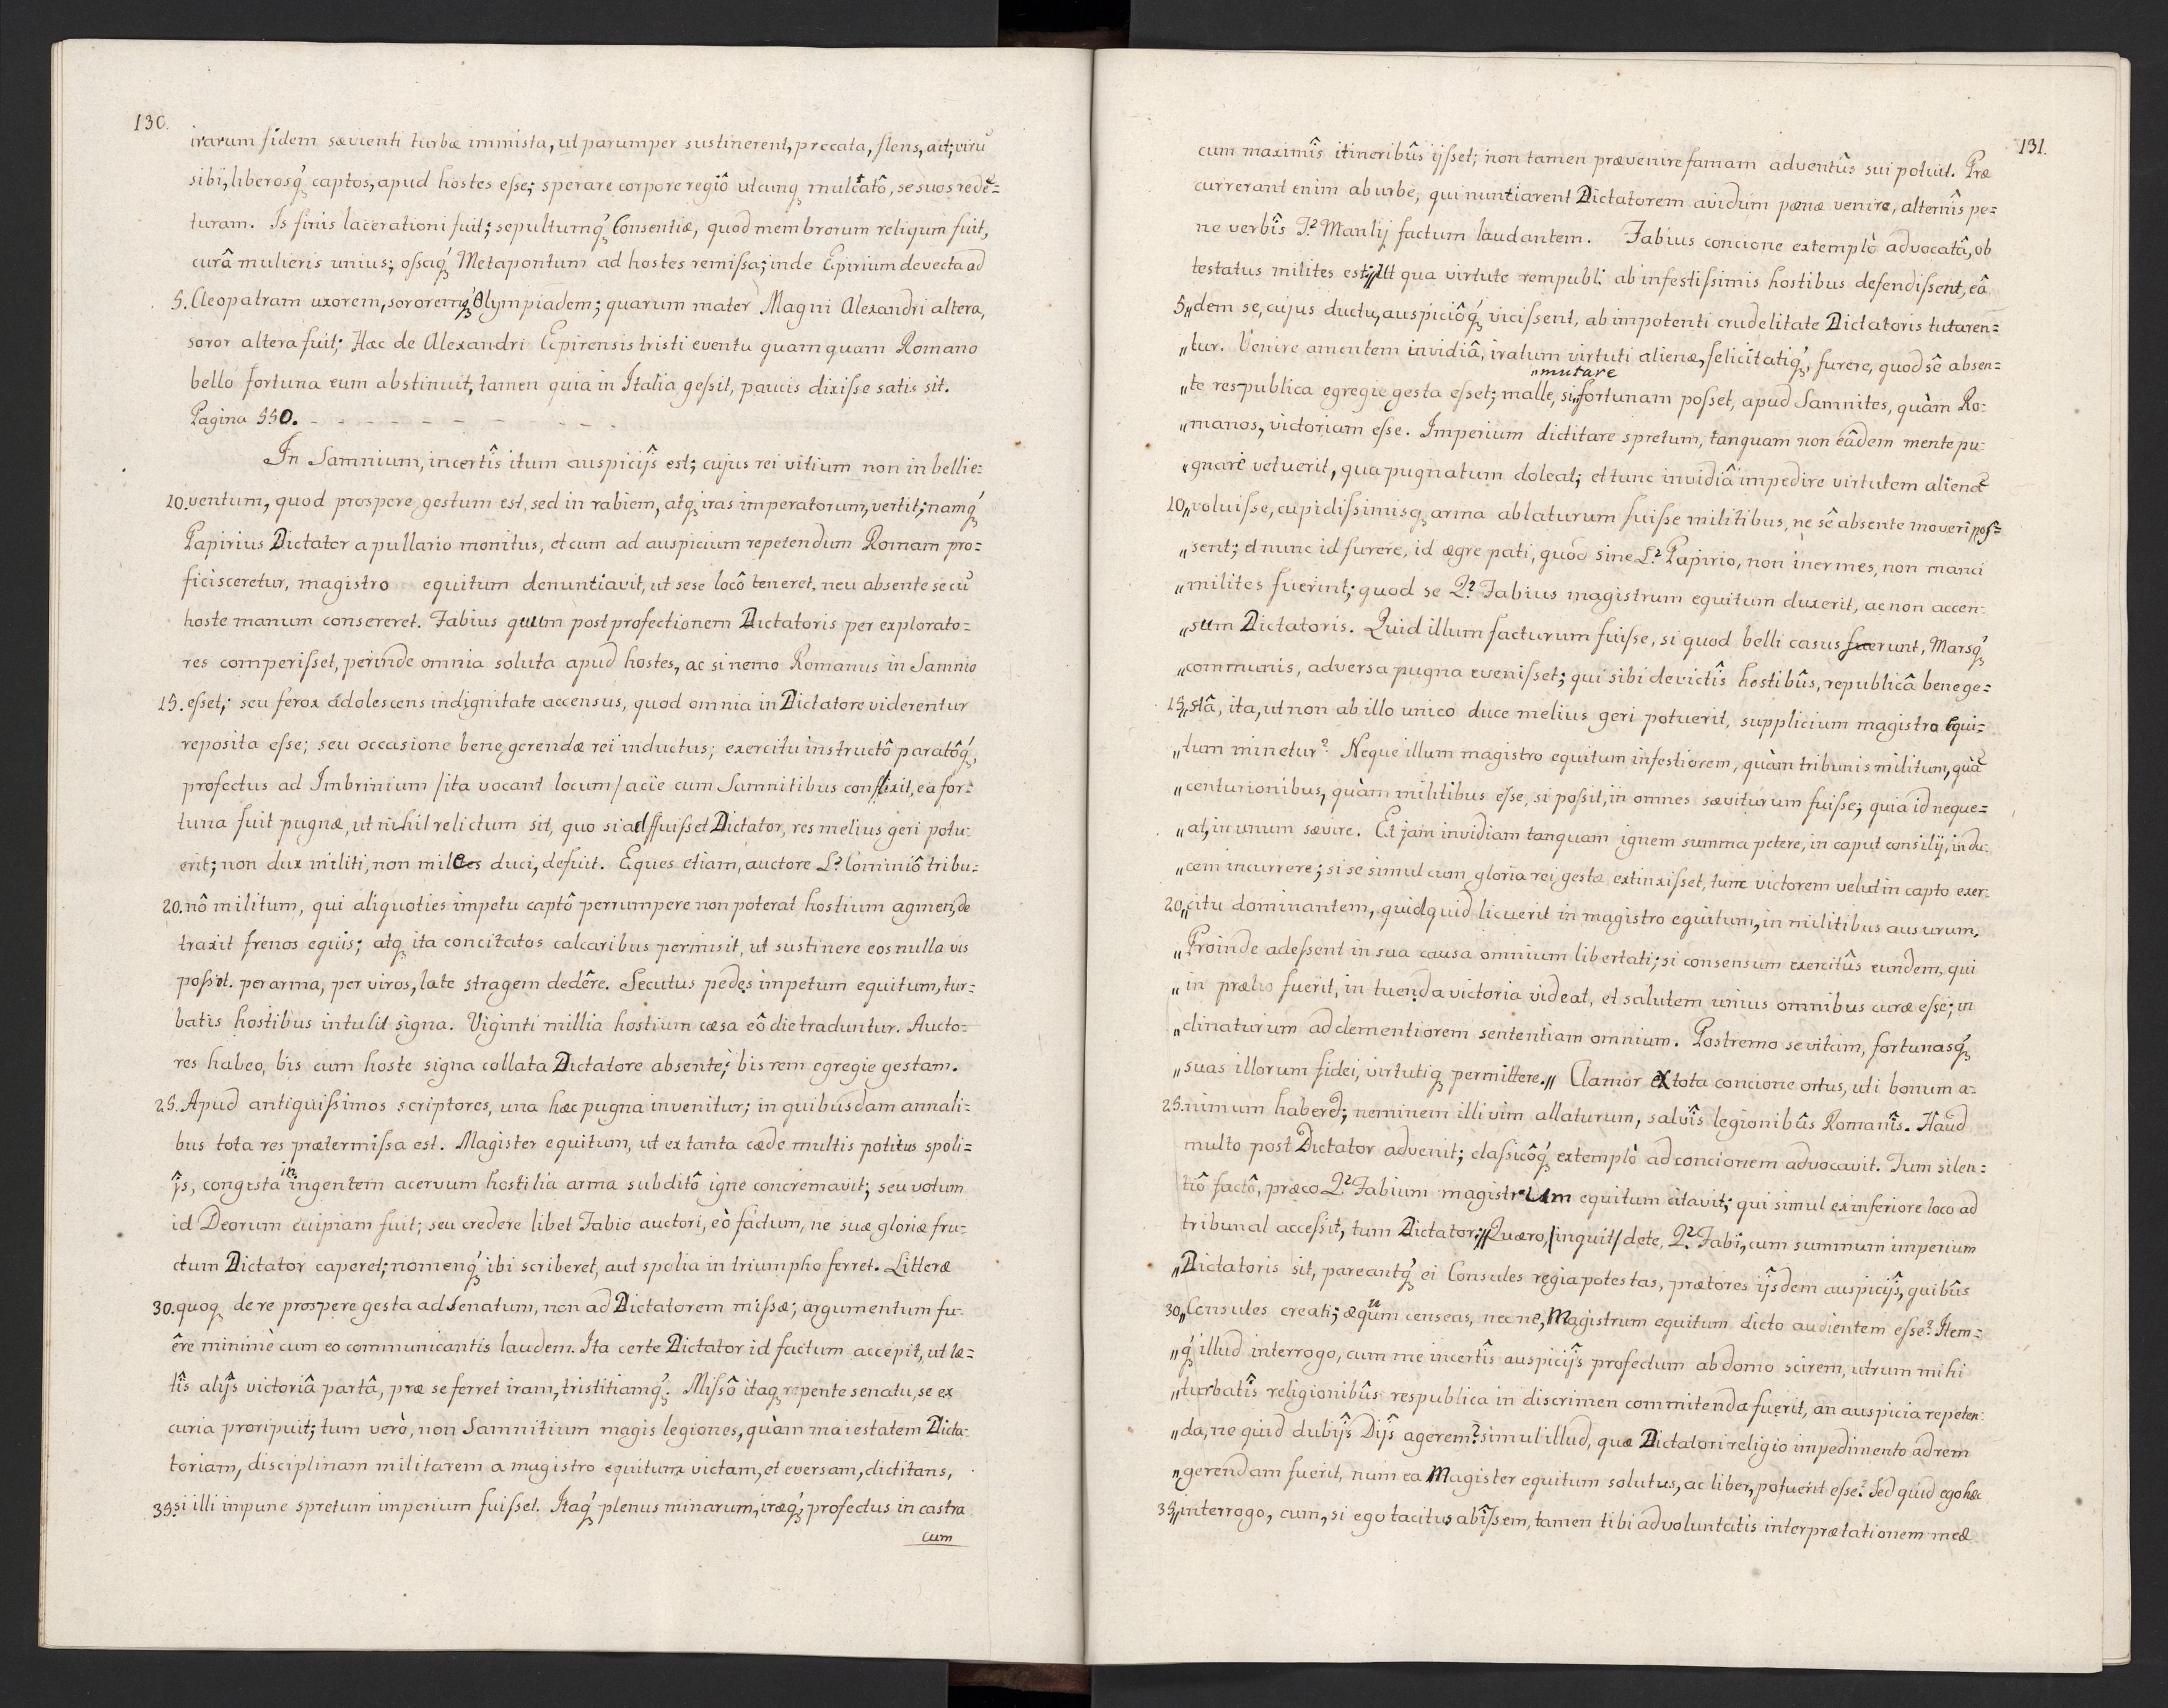 130.
irarum fidem sævienti turbæ immista, ut parumper sustinerent, precata, flens, ait; virū
sibi, liberosq́ captos, apud hostes esse; sperare corpore regiô utcunq mulctatô, se suos redē=
turam. Is finis lacerationi fuit; sepultumq́ Consentiæ, quod membrorum reliqum fuit,
curâ mulieris unius; ossaq́ Metapontum ad hostes remissa; inde Epirium devecta ad
5. Cleopatram uxorem, sororemq́ Olympiadem; quarum mater Magni Alexandri altera,
soror altera fuit; Hæc de Alexandri Epirensis tristi eventu quamquam Romano
bello fortuna eum abstinuit, tamen quia in Italia gessit, paucis dixisse satis sit.
Pagina 550. - - - - - - - - - - -
In Samnium, incertîs itum auspicijŝ est; cujus rei vitium non in belli e=
10. ventum, quod prospere gestum est, sed in rabiem, atq iras imperatorum, vertit; namq́
Papirius Dictator a pullario monitus, et cum ad auspicium repetendum Romam pro=
ficisceretur, magistro equitum denuntiavit, ut sese locô teneret, neu absente se cū
hoste manum consereret. Fabius quum post profectionem Dictatoris per explorato=
res comperisset, perinde omnia soluta apud hostes, ac si nemo Romanus in Samnio
15. esset; seu ferox adolescens indignitate accensus, quod omnia in Dictatore viderentur
reposita esse; seu occasione bene gerendæ rei inductus; exercitu instructô paratôq́,
profectus ad Imbrinium /ita vocant locum/ acie cum Samnitibus conflixit, ea for=
tuna fuit pugnæ, ut nihil relictum sit, quo si adfuisset Dictator, res melius geri potu=
erit; non dux militi, non miles duci, defuit. Eques etiam, auctore L? Cominiô tribu=
20. nô militum, qui aliquoties impetu captô perrumpere non poterat hostium agmen, de
traxit frenos equis; atq ita concitatos calcaribus permisit, ut sustinere eos nulla vis
possit. per arma, per viros, late stragem dedêre. Secutus pedes impetum equitum, tur=
batis hostibus intulit signa. Viginti millia hostium cæsa eô die traduntur. Aucto=
res habeo, bis cum hoste signa collata Dictatore absente; bis rem egregie gestam.
25. Apud antiquissimos scriptores, una hæc pugna invenitur; in quibusdam annali=
bus tota res prætermissa est. Magister equitum, ut ex tanta cæde multis potitus spoli=
in
jŝ, congesta ingentem acervum hostilia arma subditô igne concremavit; seu votum
id Deorum cuipiam fuit; seu credere libet Fabio auctori, eò factum, ne suæ gloriæ fru=
ctum Dictator caperet; nomenq́ ibi scriberet, aut spolia in triumpho ferret. Litteræ
30. quoq de re prospere gesta ad Senatum, non ad Dictatorem missæ; argumentum fu=
êre minimè cum eo communicantis laudem. Ita certe Dictator id factum accepit, ut læ=
tîs alijŝ victoriâ partâ, præ se ferret iram, tristitiamq́. Missô itaq repente senatu, se ex
curia proripuit; tum verò, non Samnitium magis legiones, quàm maiestatem Dicta=
toriam, disciplinam militarem a magistro equitum victam, et eversam, dictitans,
35. si illi impune spretum imperium fuisset. Itaq́ plenus minarum, iræq́, profectus in castra
cum
131.
cum maximîs itineribûs ijsset; non tamen prævenire famam adventûs sui potuit. Præ
currerant enim ab urbe, qui nuntiarent Dictatorem avidum pænæ venire, alternîs pe=
ne verbîs T? Manlij factum laudantem. Fabius concione extemplò advocatâ, ob
testatus milites est; „Ut qua virtute rempubl: ab infestissimis hostibus defendissent, eâ
5. „dem se, cujus ductu, auspiciôq́ vicissent, ab impotenti crudelitate Dictatoris tutaren=
„tur. Venire amentem invidiâ, iratum virtuti alienæ, felicitatiq́, furere, quod sê absen=
„mutare
„te res-publica egregie gesta esset; malle, si„ fortunam posset, apud Samnites, quàm Ro=
„manos, victoriam esse. Imperium dictitare spretum, tanquam non eâdem mente pu=
„gnare vetuerit, qua pugnatum doleat; et tunc invidiâ impedire virtutem alienā
10. „voluisse, cupidissimisq arma ablaturum fuisse militibus, ne sê absente moveri pos=
„sent; et nunc id furere, id ægre pati, quod sine L? Papirio, non inermes, non manci
„milites fuerint; quod se Q? Fabius magistrum equitum duxerit, ac non accen=
„sum Dictatoris. Quid illum facturum fuisse, si quod belli casus fuerunt, Marsq́
„communis, adversa pugna evenisset; qui sibi devictîs hostibûs, republicâ bene ge=
15. „stâ, ita, ut non ab illo unico duce melius geri potuerit, supplicium magistro equi=
„tum minetur? Neque illum magistro equitum infestiorem, quàm tribunis militum, quā
„centurionibus, quàm militibus esse, si possit, in omnes sæviturum fuisse; quia id neque=
„at, in unum sævire. Et jam invidiam tanquam ignem summa petere, in caput consilij, in du=
„cem incurrere; si se simul cum gloria rei gestæ extinxisset, tunc victorem velut in capto exer=
20. „citu dominantem, quidquid licuerit in magistro equitum, in militibus ausurum.
„Proinde adessent in sua causa omnium libertati; si consensum exercitûs eundem, qui
„in prælio fuerit, in tuenda victoria videat, et salutem unius omnibus curæ esse; in
„clinaturum ad clementiorem sententiam omnium. Postremo se vitam, fortunasq́
„suas illorum fidei, virtutiq permittere.„ Clamor ex tota concione ortus, uti bonum a=
25. nimum haberet; neminem illi vim allaturum, salvîs legionibûs Romanîs. Haud
multo post Dictator advenit; classicôq́ extemplò ad concionem advocavit. Tum silen=
tiô factô, præco Q? Fabium magistrum equitum citavit; qui simul ex inferiore loco ad
tribunal accessit, tum Dictator; „Quæro, /inquit/ de te, Q? Fabi, cum summum imperium
„Dictatoris sit, pareantq́ ei Consules regia potestas, prætores ijsdem auspicijŝ, quibûs
30. „Consules creati; æquum censeas, nec ne, Magistrum equitum dicto audientem esse? Item=
„q́ illud interrogo, cum me incertîs auspicijŝ profectum ab domo scirem, utrum mihi
„turbatîs religionibûs respublica in discrimen commitenda fuerit, an auspicia repeten=
„da, ne quid dubijŝ Dijŝ agerem? simul illud, quæ Dictatori religio impedimento ad rem
„gerendam fuerit, num ea Magister equitum solutus, ac liber, potuerit esse? Sed quid ego hæc
35. „interrogo, cum, si ego tacitus abîssem, tamen tibi ad voluntatis interprætationem meæ